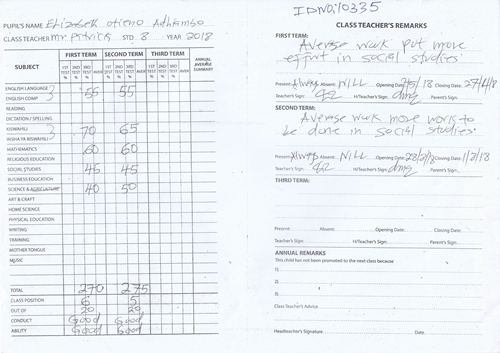 PUPIL'S NAME Elizabeth otieno Adhiambo
CLASS TEACHER mr Patrick STD 8 YEAR 2018
SUBJECT
FIRST TERM SECOND TERM THIRD TERM ANNUAL AVERAGE SUMMARY
1ST TEST % 2ND TEST % 3RD TEST % AVER 1ST TEST % 2ND TEST % 3RD TEST % AVER 1ST TEST % 2ND TEST % 3RD TEST % AVER
ENGLISH LANGUAGE 55 55
ENGLISH COMP
READING
DICTATION / SPELLING
KISWAHILI 70 65
INSHA YA KISWAHILI
MATHEMATICS 60 60
RELIGIOUS EDUCATION
SOCIAL STUDIES 45 45
BUSINESS EDUCATION
SCIENCE & AGRICULTURE 40 50
ART & CRAFT
HOME SCIENCE
PHYSICAL EDUCATION
WRITING
TRAINING
MOTHER TONGUE
MUSIC
TOTAL 270 275
CLASS POSITION 6 5
OUT OF 20 20
CONDUCT Good Good
ABILITY Good Good
IDNO:10335
CLASS TEACHER'S REMARKS
FIRST TERM:
Average work put more
effort in social studies
Present: Always Absent: NILL Opening Date: /18 Closing Date: 27/4/18
Teacher's Sign: H/Teacher's Sign: Parent's Sign:
SECOND TERM:
Average work more work to
be done in social studies
Present: Always Absent: NILL Opening Date: Closing Date: 1/2/18
Teacher's Sign: H/Teacher's Sign: Parent's Sign:
THIRD TERM:
Present: Absent: Opening Date: Closing Date:
Teacher's Sign: H/Teacher's Sign: Parent's Sign:
ANNUAL REMARKS
This child has not been promoted to the next class because
1)
2)
3)
Class Teacher's Advice
Headteacher's Signature Date